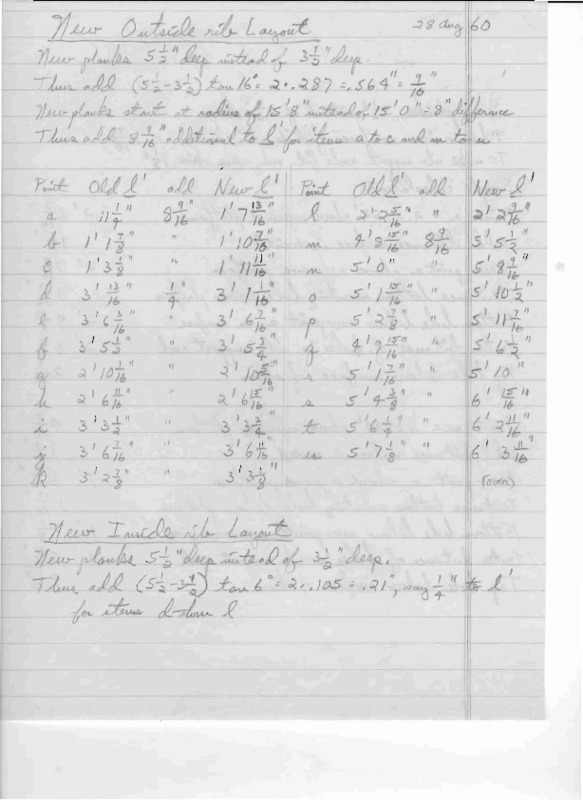 New Outside rib Layout 28 Aug 60
New planks 5 1/2" deep instead of 3 1/2" deep.
Thus add (5 1/2 - 3 1/2) tan 16° = 2 · .287 = .564" = 9/16"
New planks start at radius of 15'8" instead of 15'0" = 8" difference
Thus add 8 9/16" additional to l for items a to c and m to u
Point Old l' add New l' Point Old l' add New l'
a 11 1/4" 8 9/16" 1' 7 13/16" l 2' 2 5/16" " 2' 2 9/16"
b 1' 1 7/8" " 1' 10 7/16" m 4' 8 15/16" 8 9/16 5' 5 1/2"
c 1' 3 1/8" " 1' 11 11/16" n 5' 0" " 5' 8 9/16"
d 3' 13/16" 1/4" 3' 1 1/16" o 5' 1 15/16" " 5' 10 1/2"
e 3' 6 3/16" " 3' 6 7/16" p 5' 2 7/8" " 5' 11 7/16"
f 3' 5 1/2" " 3' 5 3/4" q 4' 9 15/16" " 5' 6 1/2"
g 2' 10 1/16" " 2' 10 5/16" r 5' 1 7/16" " 5' 10"
h 2' 6 11/16" " 2' 6 15/16" s 5' 4 3/8" " 6' 15/16"
i 3' 3 1/2" " 3' 3 3/4" t 5' 6 1/4" " 6' 2 11/16"
j 3' 6 7/16" " 3' 6 11/16" u 5' 7 1/8" " 6' 3 11/16"
k 3' 2 7/8" " 3' 3 1/8" (over)
New Inside rib Layout
New planks 5 1/2" deep instead of 3 1/2" deep.
Thus add (5 1/2 - 3 1/2) tan 6° = 2 · .105 = .21", say 1/4" to l'
for items d thru l